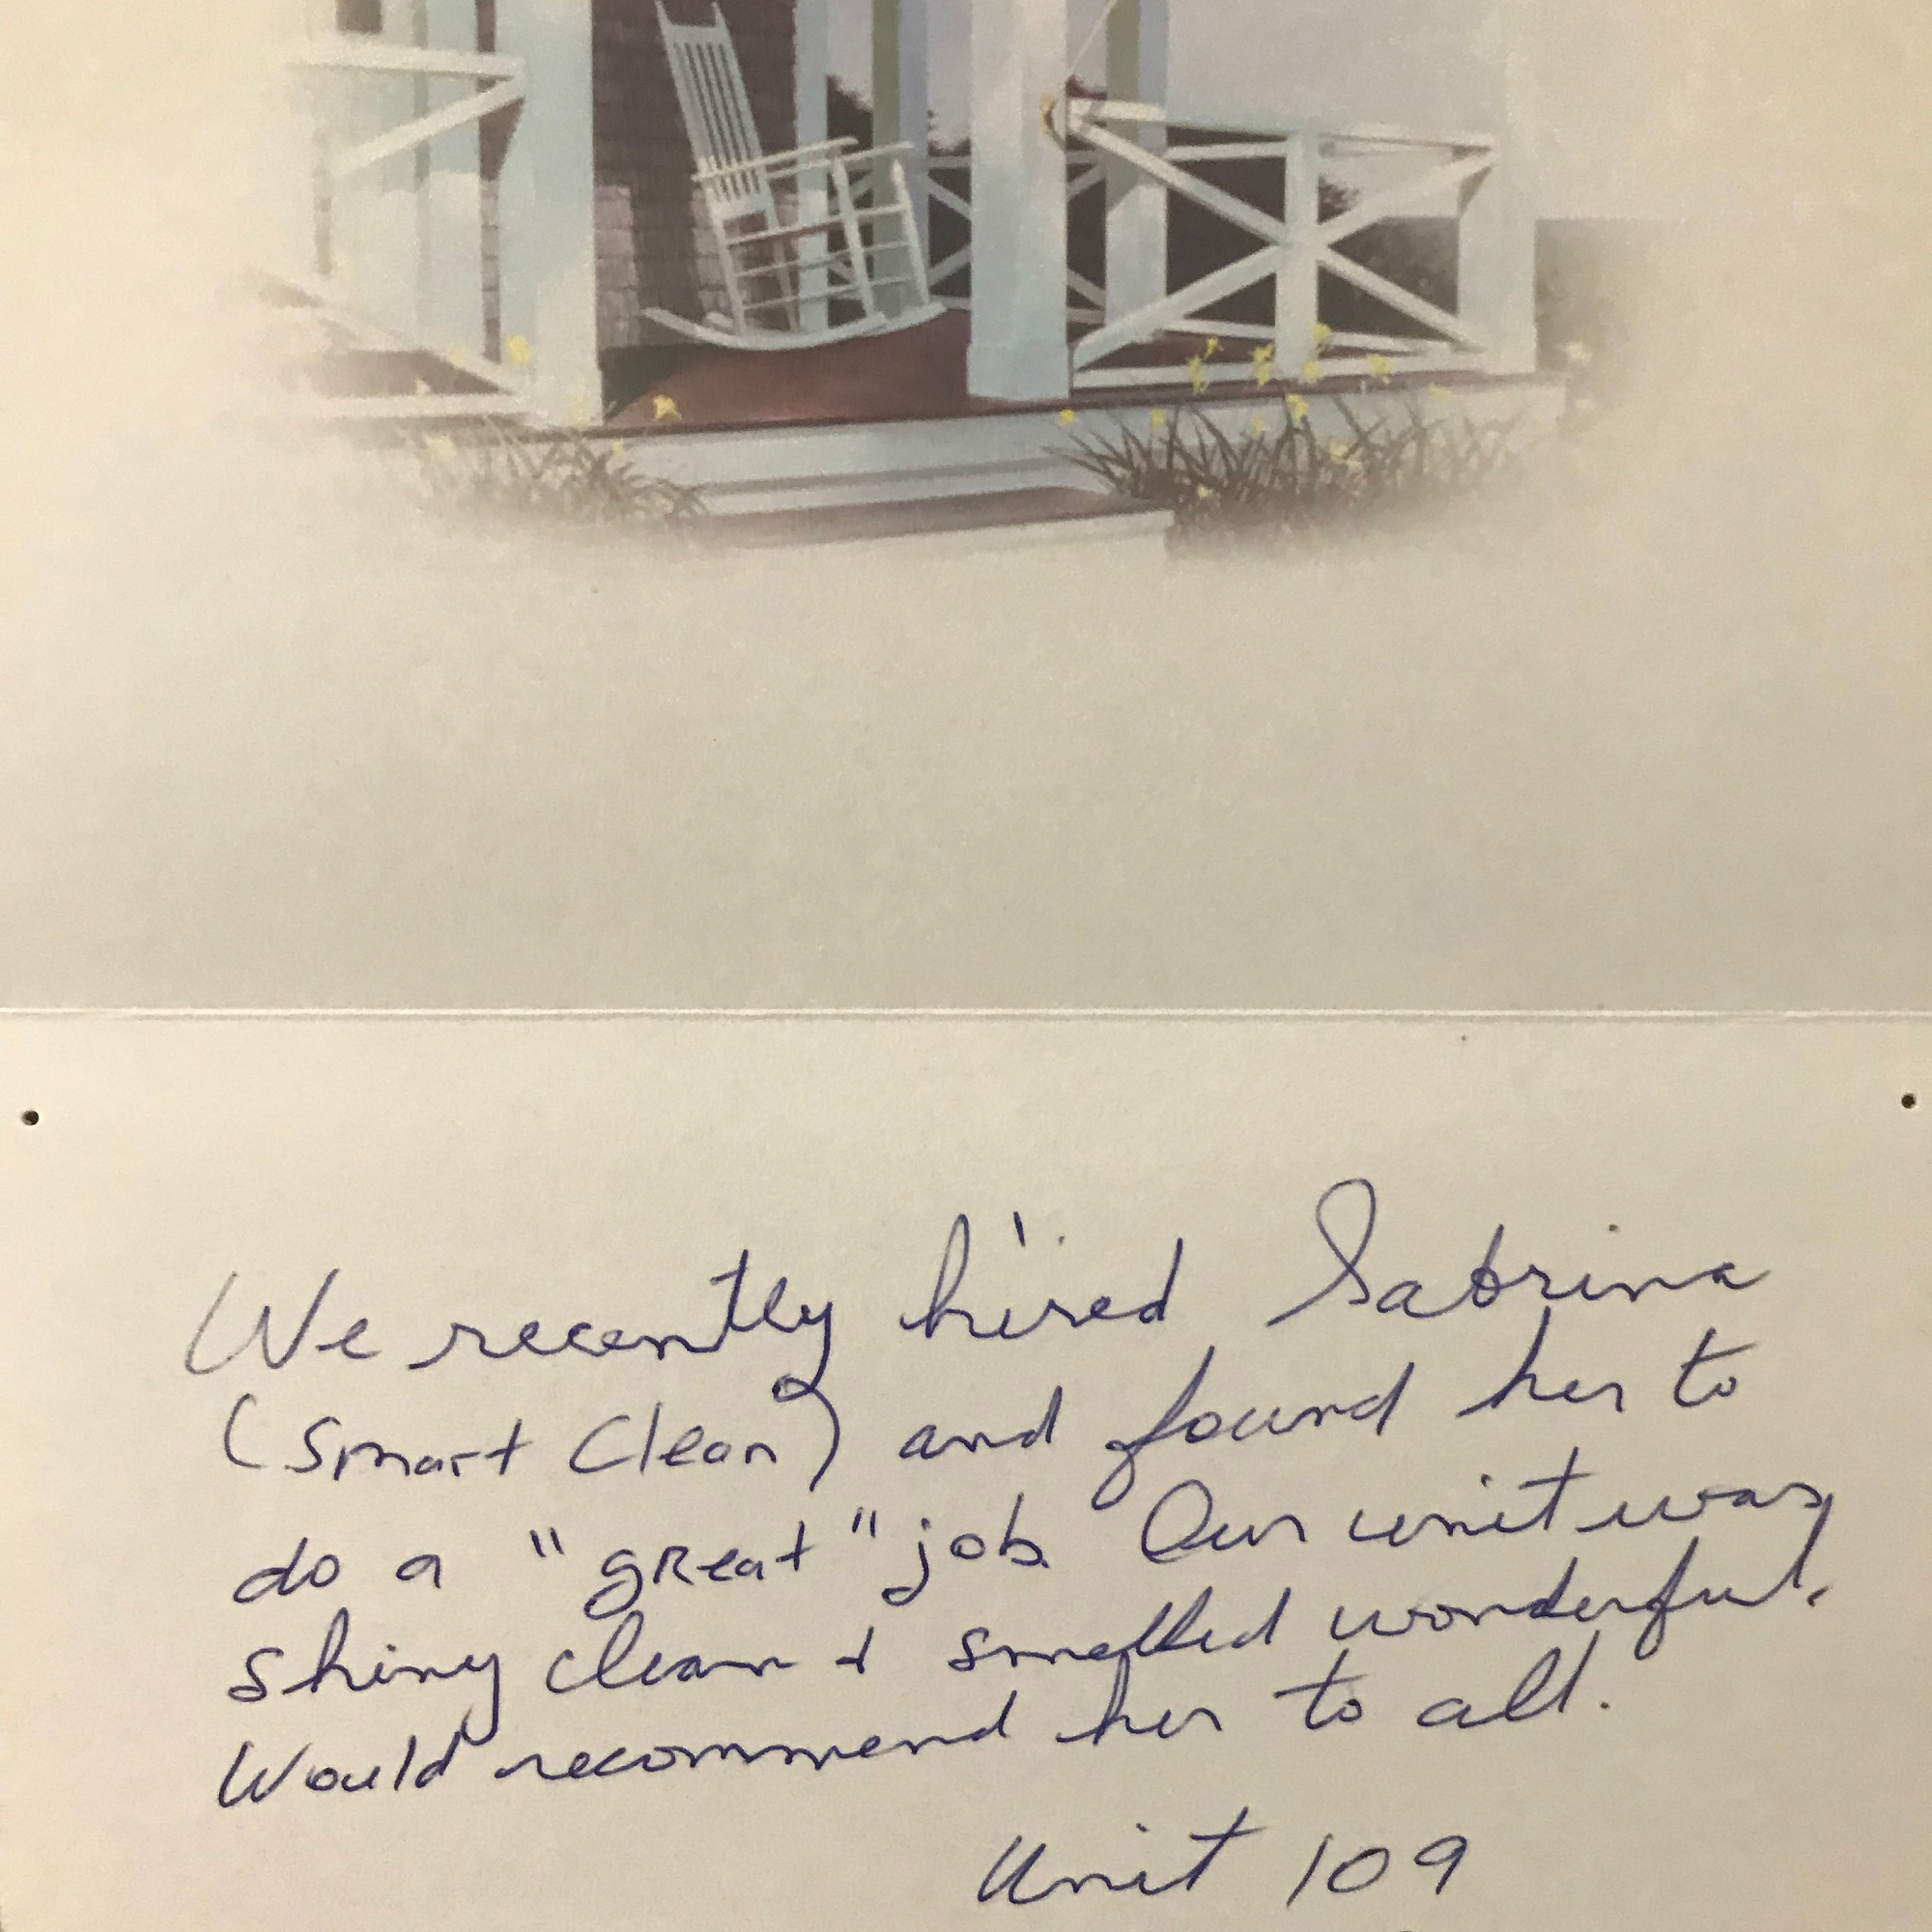 We recently hired Sabrina
(Smart Clean) and found her to
do a "great" job. Our unit was
shiny clean & smelled wonderful.
Would recommend her to all.
Unit 109